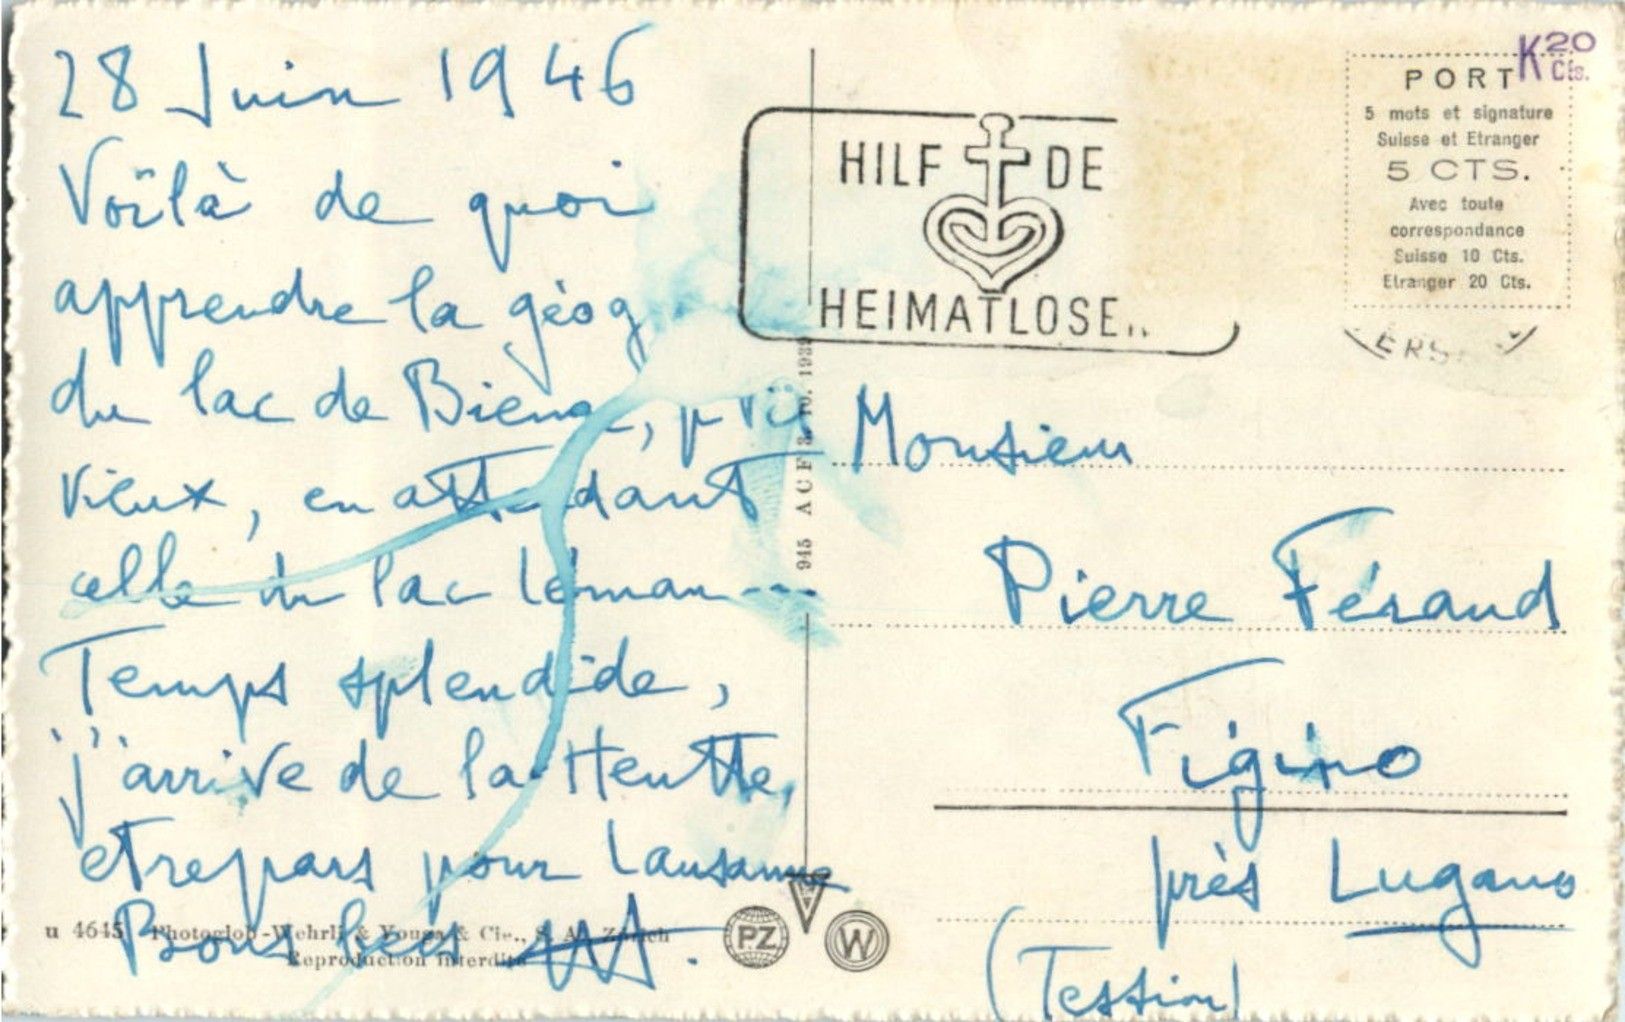 28 Juin 1946
Voïlà de quoi
apprendre la géog
du lac de Bienne,
vieux, en attendant
celle du lac Léman...
Temps splendide,
j'arrive de la Heutte,
et repars pour Lausanne
Bons
u 4645 Photoglob-Wehrli & Vouga & Cie., S. A. Zürich
Reproduction interdite
945 ACF 3. 10. 1939
HILF DE
HEIMATLOSE
K 20 Cts.
PORT
5 mots et signature
Suisse et Etranger
5 CTS.
Avec toute
correspondance
Suisse 10 Cts.
Etranger 20 Cts.
Monsieur
Pierre Féraud
Figino
près Lugano
(Tessin)
PZ
W